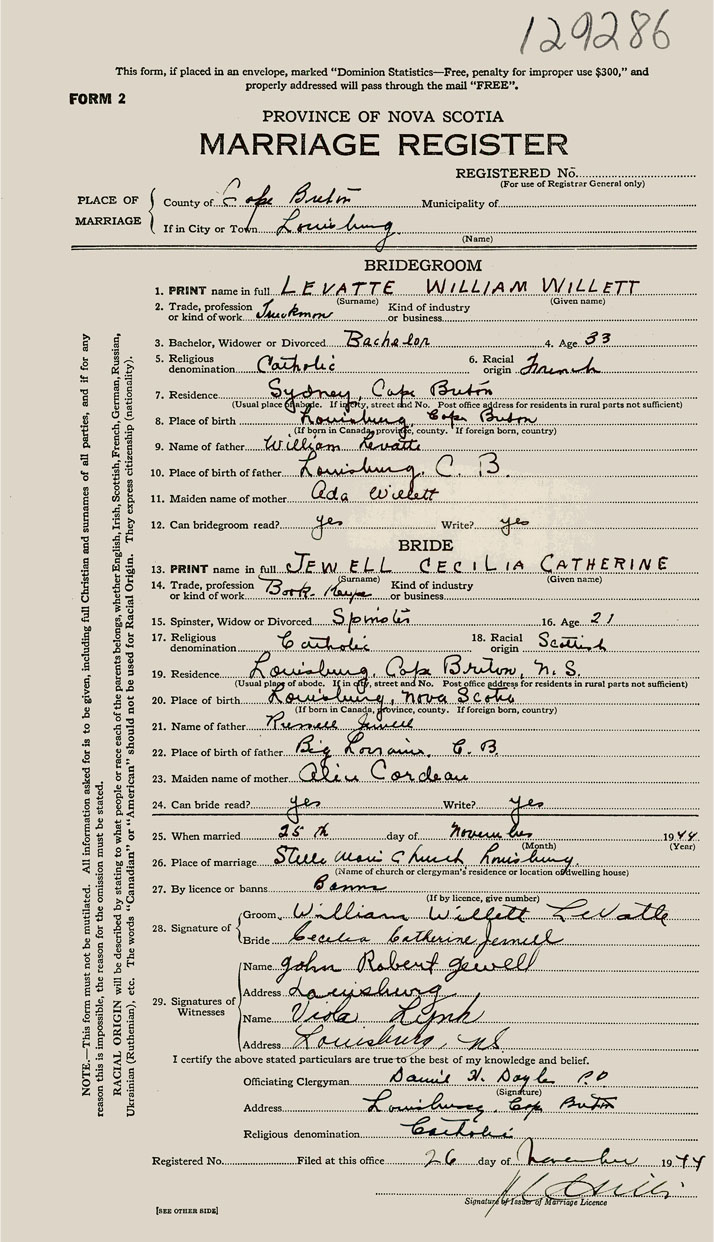 129286
This form, if placed in an envelope, marked "Dominion Statistics—Free, penalty for improper use $300," and
properly addressed will pass through the mail "FREE".
FORM 2
PROVINCE OF NOVA SCOTIA
MARRIAGE REGISTER
REGISTERED No.
(For use of Registrar General only)
PLACE OF MARRIAGE
County of Cape Breton Municipality of
If in City or Town Louisburg
(Name)
BRIDEGROOM
1. PRINT name in full LEVATTE WILLIAM WILLETT
(Surname) (Given name)
2. Trade, profession or kind of work Truckman Kind of industry or business
3. Bachelor, Widower or Divorced Bachelor 4. Age 33
5. Religious denomination Catholic 6. Racial origin French
7. Residence Sydney, Cape Breton
(Usual place of abode. If in city, street and No. Post office address for residents in rural parts not sufficient)
8. Place of birth Louisburg, Cape Breton
(If born in Canada, province, county. If foreign born, country)
9. Name of father William Levatte
10. Place of birth of father Louisburg, C. B.
11. Maiden name of mother Ada Willett
12. Can bridegroom read? yes Write? yes
BRIDE
13. PRINT name in full JEWELL CECILIA CATHERINE
(Surname) (Given name)
14. Trade, profession or kind of work Book-Keeper Kind of industry or business
15. Spinster, Widow or Divorced Spinster 16. Age 21
17. Religious denomination Catholic 18. Racial origin Scottish
19. Residence Louisburg, Cape Breton, N. S.
(Usual place of abode. If in city, street and No. Post office address for residents in rural parts not sufficient)
20. Place of birth Louisburg, Nova Scotia
(If born in Canada, province, county. If foreign born, country)
21. Name of father Russell Jewell
22. Place of birth of father Big Lorraine, C. B.
23. Maiden name of mother Alice Cordeau
24. Can bride read? yes Write? yes
25. When married 25th day of November 1944
(Month) (Year)
26. Place of marriage Stella Maris Church Louisburg
(Name of church or clergyman's residence or location of dwelling house)
27. By licence or banns Banns
(If by licence, give number)
28. Signature of
Groom William Willett LeVatte
Bride Cecilia Catherine Jewell
29. Signatures of Witnesses
Name John Robert Jewell
Address Louisburg
Name Viola Lynk
Address Louisburg, NS
I certify the above stated particulars are true to the best of my knowledge and belief.
Officiating Clergyman Daniel H. Doyle P.P.
(Signature)
Address Louisburg, Cape Breton
Religious denomination Catholic
Registered No. Filed at this office 26 day of November 1944
Signature of Issuer of Marriage Licence
[SEE OTHER SIDE]
NOTE.—This form must not be mutilated. All information asked for is to be given, including full Christian and surnames of all parties, and if for any
reason this is impossible, the reason for the omission must be stated.
RACIAL ORIGIN will be described by stating to what people or race each of the parents belongs, whether English, Irish, Scottish, French, German, Russian,
Ukrainian (Ruthenian), etc. The words "Canadian" or "American" should not be used for Racial Origin. They express citizenship (nationality).